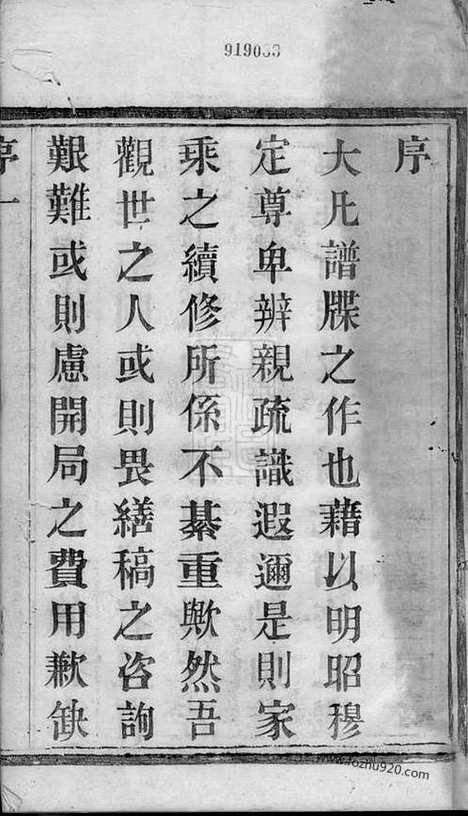 919083
序
大凡譜牒之作也藉以明昭穆
定尊卑辨親疏識遐邇是則家
乘之續修所係不綦重歟然吾
觀世之人或則畏繕稿之咨詢
艱難或則慮開局之費用歉缺
序一
www.fozhu920.com